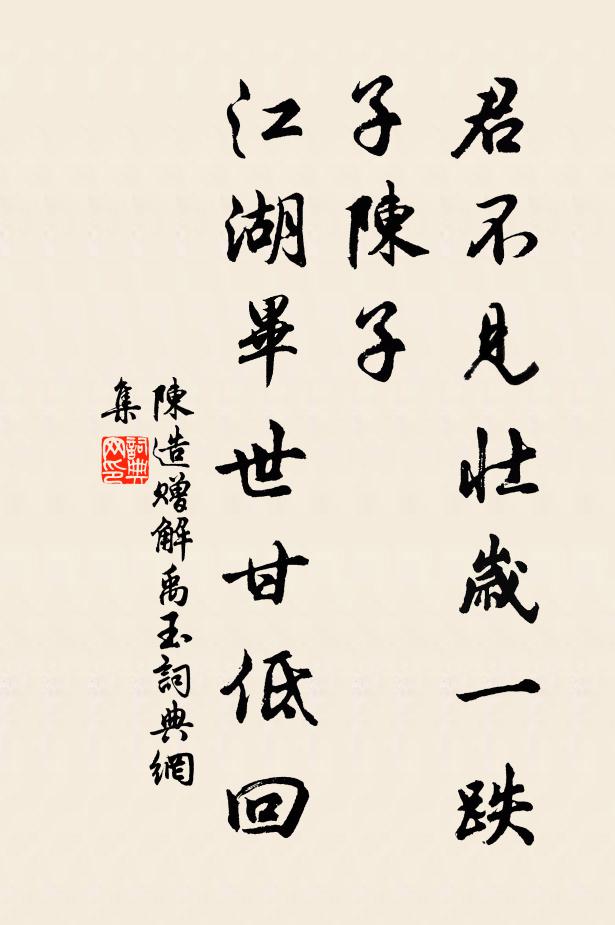 君不見壯歲一跌
子陳子
江湖畢世甘低回
陳造贈解禹玉詞典網
集
詞典
网印